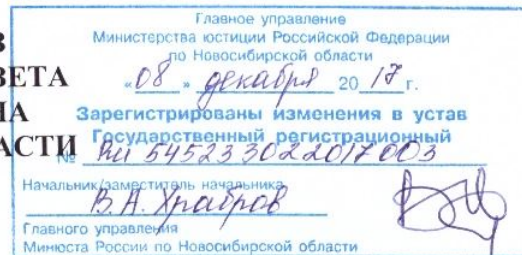 Главное управление
Министерства юстиции Российской Федерации
по Новосибирской области
«08» декабря 2017 г.
ВЕТА
НА
АСТИ
Зарегистрированы изменения в устав
Государственный регистрационный
№ RU 545233022017003
Начальник/заместитель начальника
В.А. Храбров
Главного управления
Минюста России по Новосибирской области